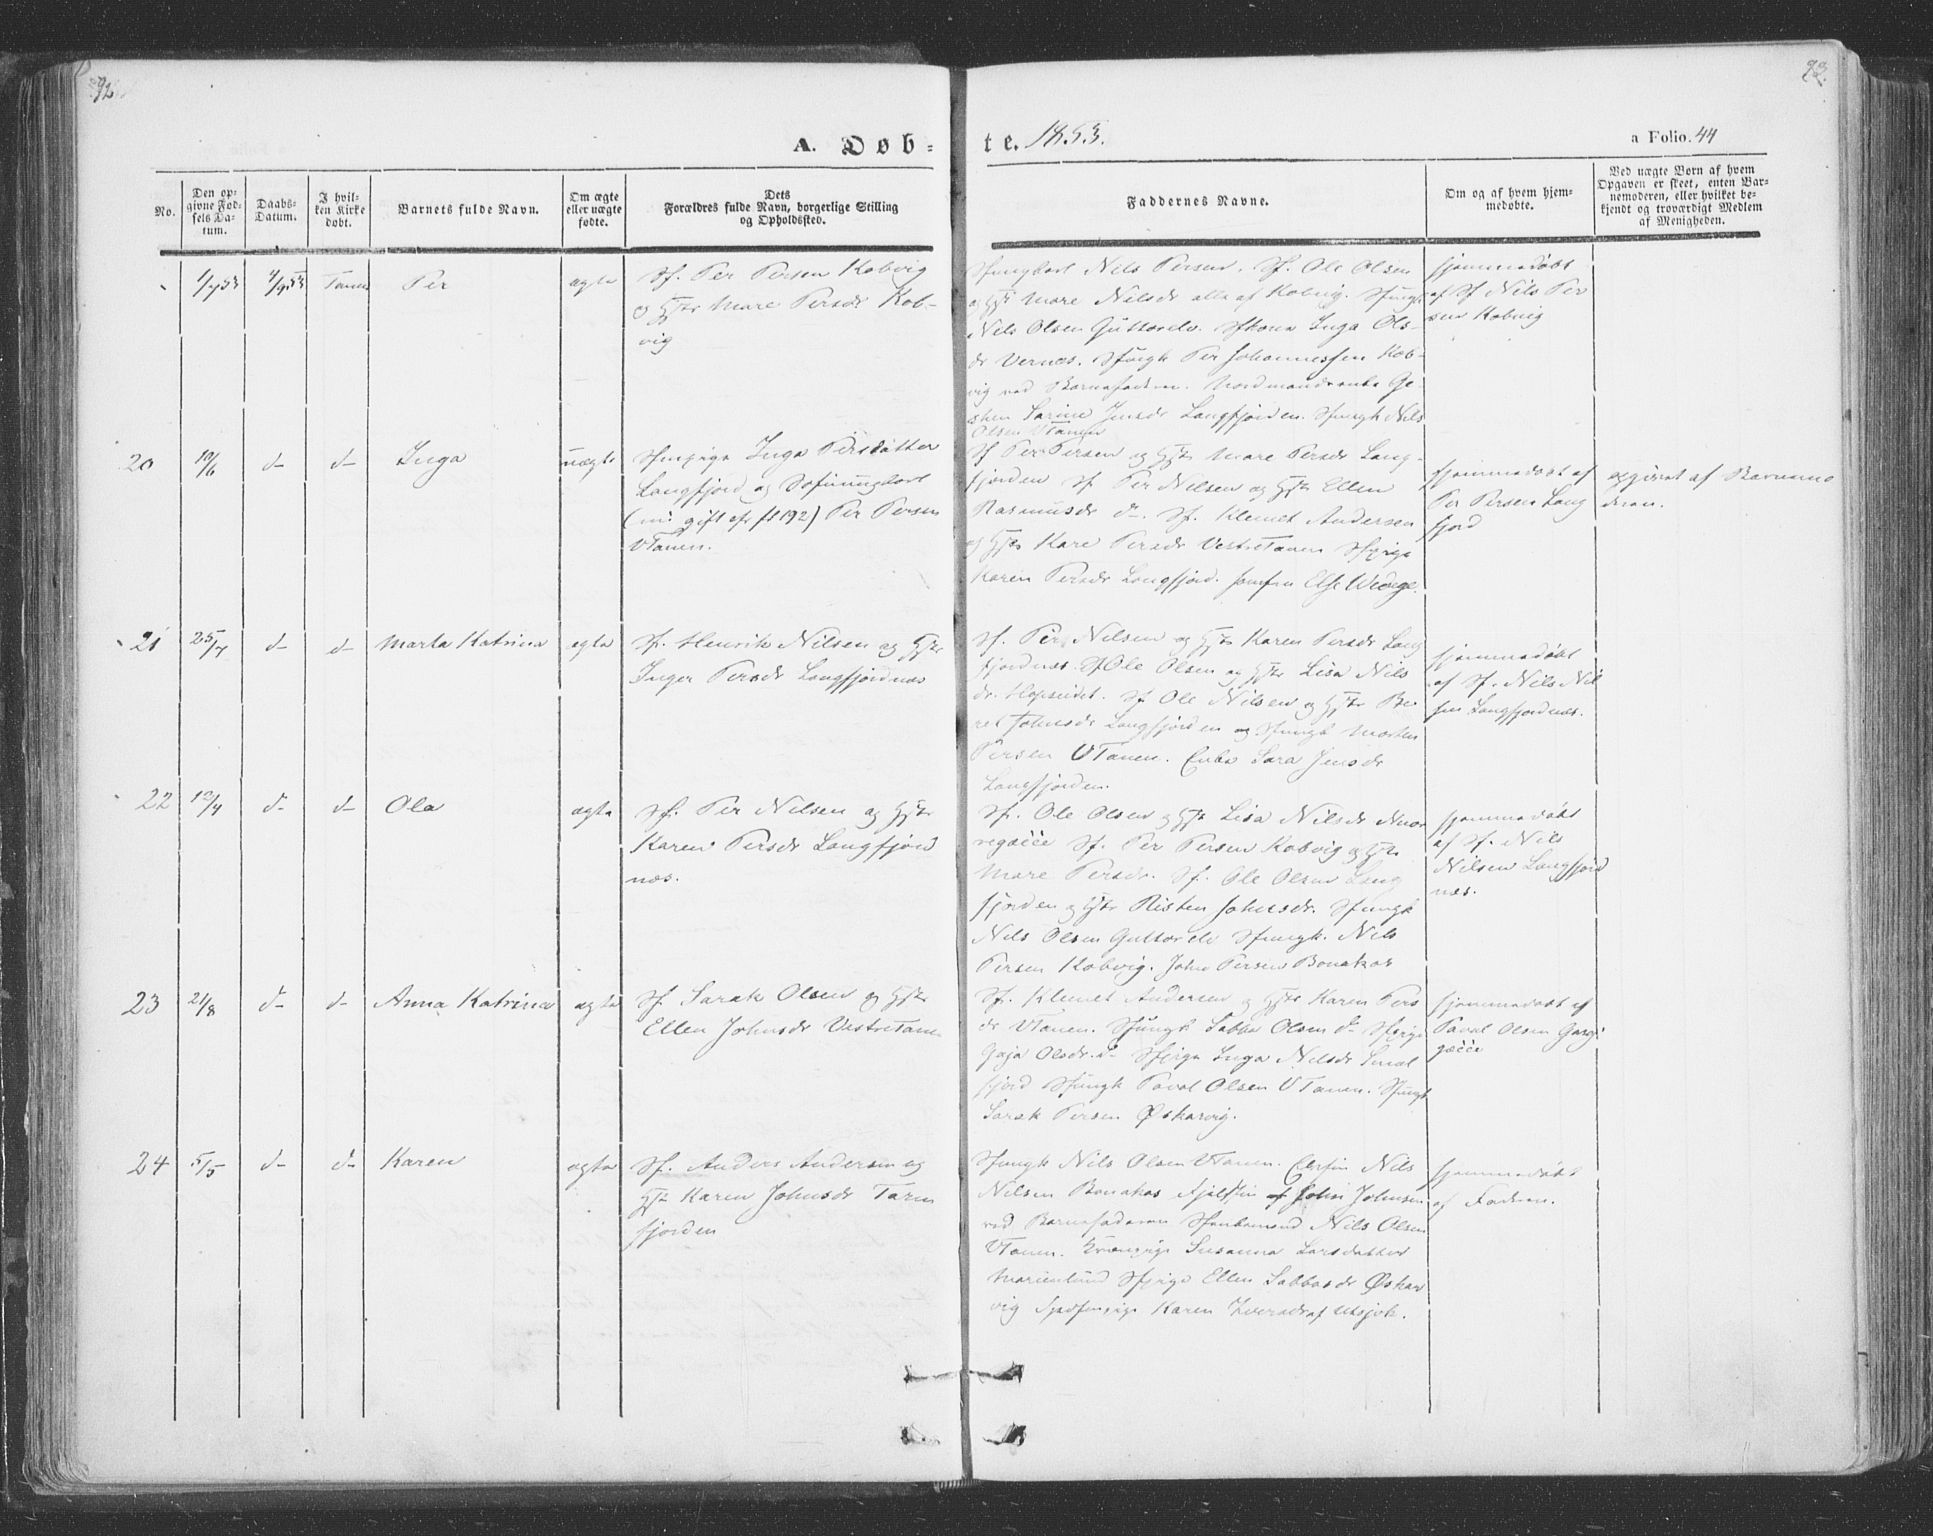 92
93.
A. Døb-
te. 1853.
a Folio. 44
No.
Den op-
givne Fød-
sels Da-
tum.
Daabs-
Datum.
I hvil-
ken Kirke
døbt.
Barnets fulde Navn.
Om ægte
eller uægte
fødte.
Dets
Forældres fulde Navn, borgerlige Stilling
og Opholdssted.
Faddernes Navne.
Om og af hvem hjem-
medøbte.
Ved uægte Børn af hvem
Opgaven er skeet, enten Bar-
nemoderen, eller hvilket be-
kjendt og troværdigt Medlem
af Menigheden.
Tanen
Per
ægte
Sf. Per Persen Kobvig
og Hstr Mare Persdr Kob-
vig
Sfungkarl Nils Persen. Sf. Ole Olsen
og Hstr Mare Nilsdr alle af Kobvig. Sfungk
Nils Olsen Guttorelv. Sfkone Inga Ols-
dr Vernes. Sfungk Per Johannessen Kob-
vig ved Barnefaderen. Nordmandsenke Ge-
Sarine Jensdr Langfjorden. Sfungk Nils
Olsen VTanen
hjemmedøbt
af Sf Nils Per
sen Kobvig
20
10/6
d-
d-
Inga
uægte
Sfinpige Inga Persdatter
Langfjord og Søfinungkarl
gift fl 192) Per Persen
VTanen.
Sf Per Persen og Hstr Mare Persdr Lang-
fjorden Sf. Per Nilsen og Hstr Ellen
Rasmusdr d-. Sf. Klemet Andersen
og Hstr Kare Persdr VestreTanen Sfpige
Karen Persdr Langfjord. Jomfru Else Wedege.
hjemmedøbt af
Per Persen Lang
fjord
opgivet af Barnemo
deren.
21
25/7
d-
d-
Marta Katrina
ægte
Sf. Henrik Nilsen og Hstr
Inger Persdr Langfjordnæs
Sf. Per Nilsen og Hstr Karen Persdr Lang
fjordnæs. Sf Ole Olsen og Hstr Lisa Nils
dr. Hopseidet. Sf Ole Nilsen og Hstr Be
ret Johnsdr Langfjorden og Sfungk Morten
Persen VTanen. Enke Sara Jensdr
Langfjorden.
hjemmedøbt
af Sf. Nils Nil
sen Langfjordnæs.
22
12/4
d-
d-
Ola
ægte
Sf. Per Nilsen og Hstr
Karen Persdr Langfjord
næs.
Sf. Ole Olsen og Hstr Lisa Nilsdr
Sf. Per Persen Kobvig og Hstr
Mare Persdr. Sf. Ole Olsen Lang
fjorden og Hstr Risten Johnsdr. Sfungk
Nils Olsen Guttorelv Sfungk. Nils
Persen Kobvig. John Persen Bonakas
hjemmedøbt
af Sf. Nils
Nilsen Langfjord
næs.
23
21/8
d-
d-
Anna Katrina
ægte
Sf. Sarak Olsen og Hstr
Ellen Johnsdr VestreTanen
Sf. Klemet Andersen og Hstr Karen Pers
dr VTanen. Sfungk Sabba Olsen d- Sfpige
Gaja Olsdr. d- Sfpige Inga Nilsdr Smal
fjord Sfungk Paval Olsen VTanen. Sfungk
Sarak Persen Øskarvig.
hjemmedøbt af
Paval Olsen
24
5/5
d-
d-
Karen
ægte
Sf. Anders Andersen og
Hstr Karen Johnsdr Tarm
fjorden
Sfungk Nils Olsen VTanen. Elvfin Nils
Nilsen Bonakas Fjelfin John Johnsen
ved Barnefaderen Sfenkemand Nils Olsen
VTanen. Kvænpige Susanna Larsdatter
Marienlund Sfpige Ellen Sabbasdr Øskar
vig Karen Iversdr af Utsjok.
hjemmedøbt
af Faderen.